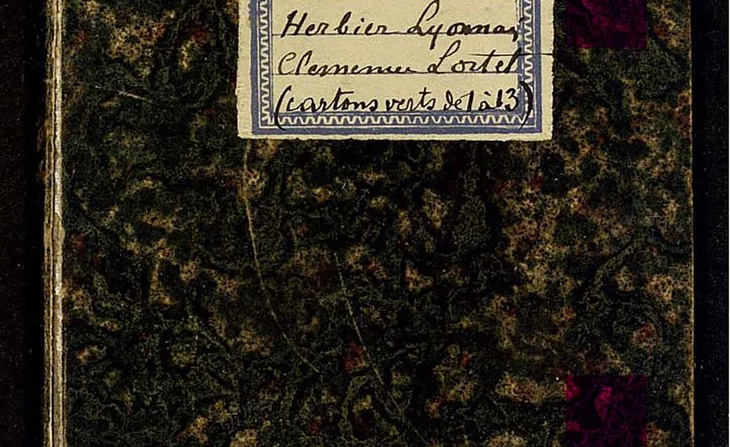 Herbier Lyonnais
Clemence Lortet
(cartons verts de 1 à 13)